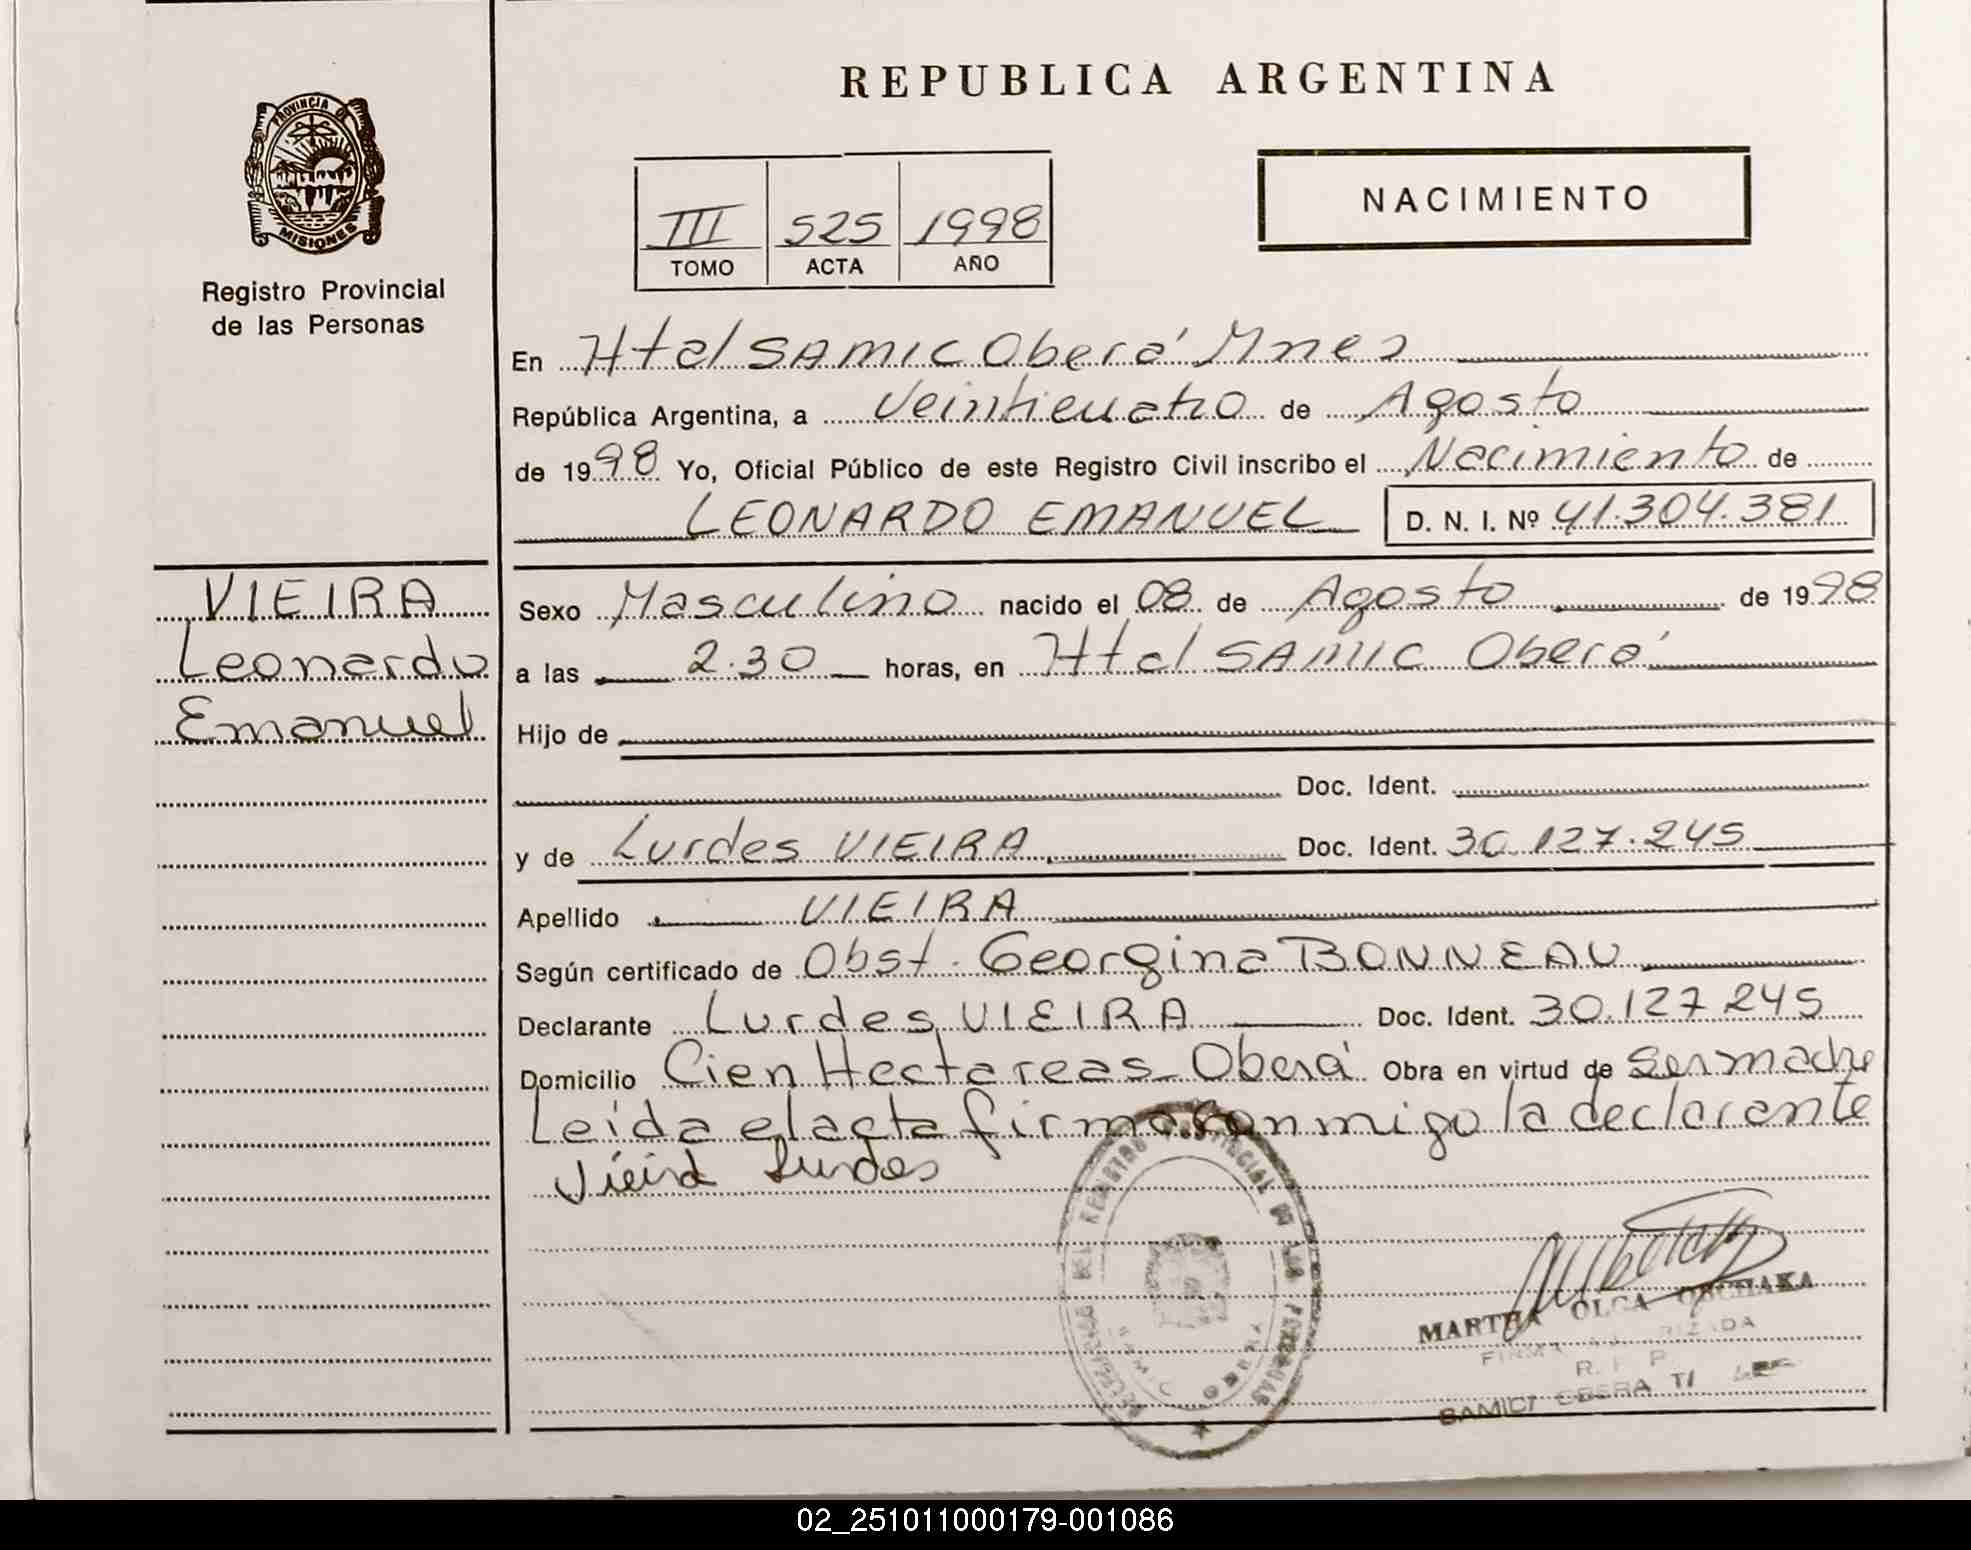 REPUBLICA ARGENTINA
PROVINCIA D
MISIONES
Registro Provincial
de las Personas
NACIMIENTO
III 525 1998
TOMO ACTA AÑO
En Htal SAMIC Oberá Mnes
República Argentina, a Veinticuatro de Agosto
de 1998 Yo, Oficial Público de este Registro Civil inscribo el Nacimiento de
LEONARDO EMANUEL D. N. I. Nº 41.304.381
VIEIRA
Leonardo
Emanuel
Sexo Masculino nacido el 08 de Agosto de 1998
a las 2.30 horas, en Htal SAMIC Oberá
Hijo de
Doc. Ident.
y de Lurdes VIEIRA Doc. Ident. 30.127.245
Apellido VIEIRA
Según certificado de Obst. Georgina BONNEAU
Declarante Lurdes VIEIRA Doc. Ident. 30.127.245
Domicilio Cien Hectareas - Oberá Obra en virtud de ser madre
Leída el acta firma conmigo la declarante
Vieira Lurdes
REGISTRO PROVINCIAL DE LAS PERSONAS
MARTHA OLGA
R. P.
SAMIC OBERA
02_251011000179-001086